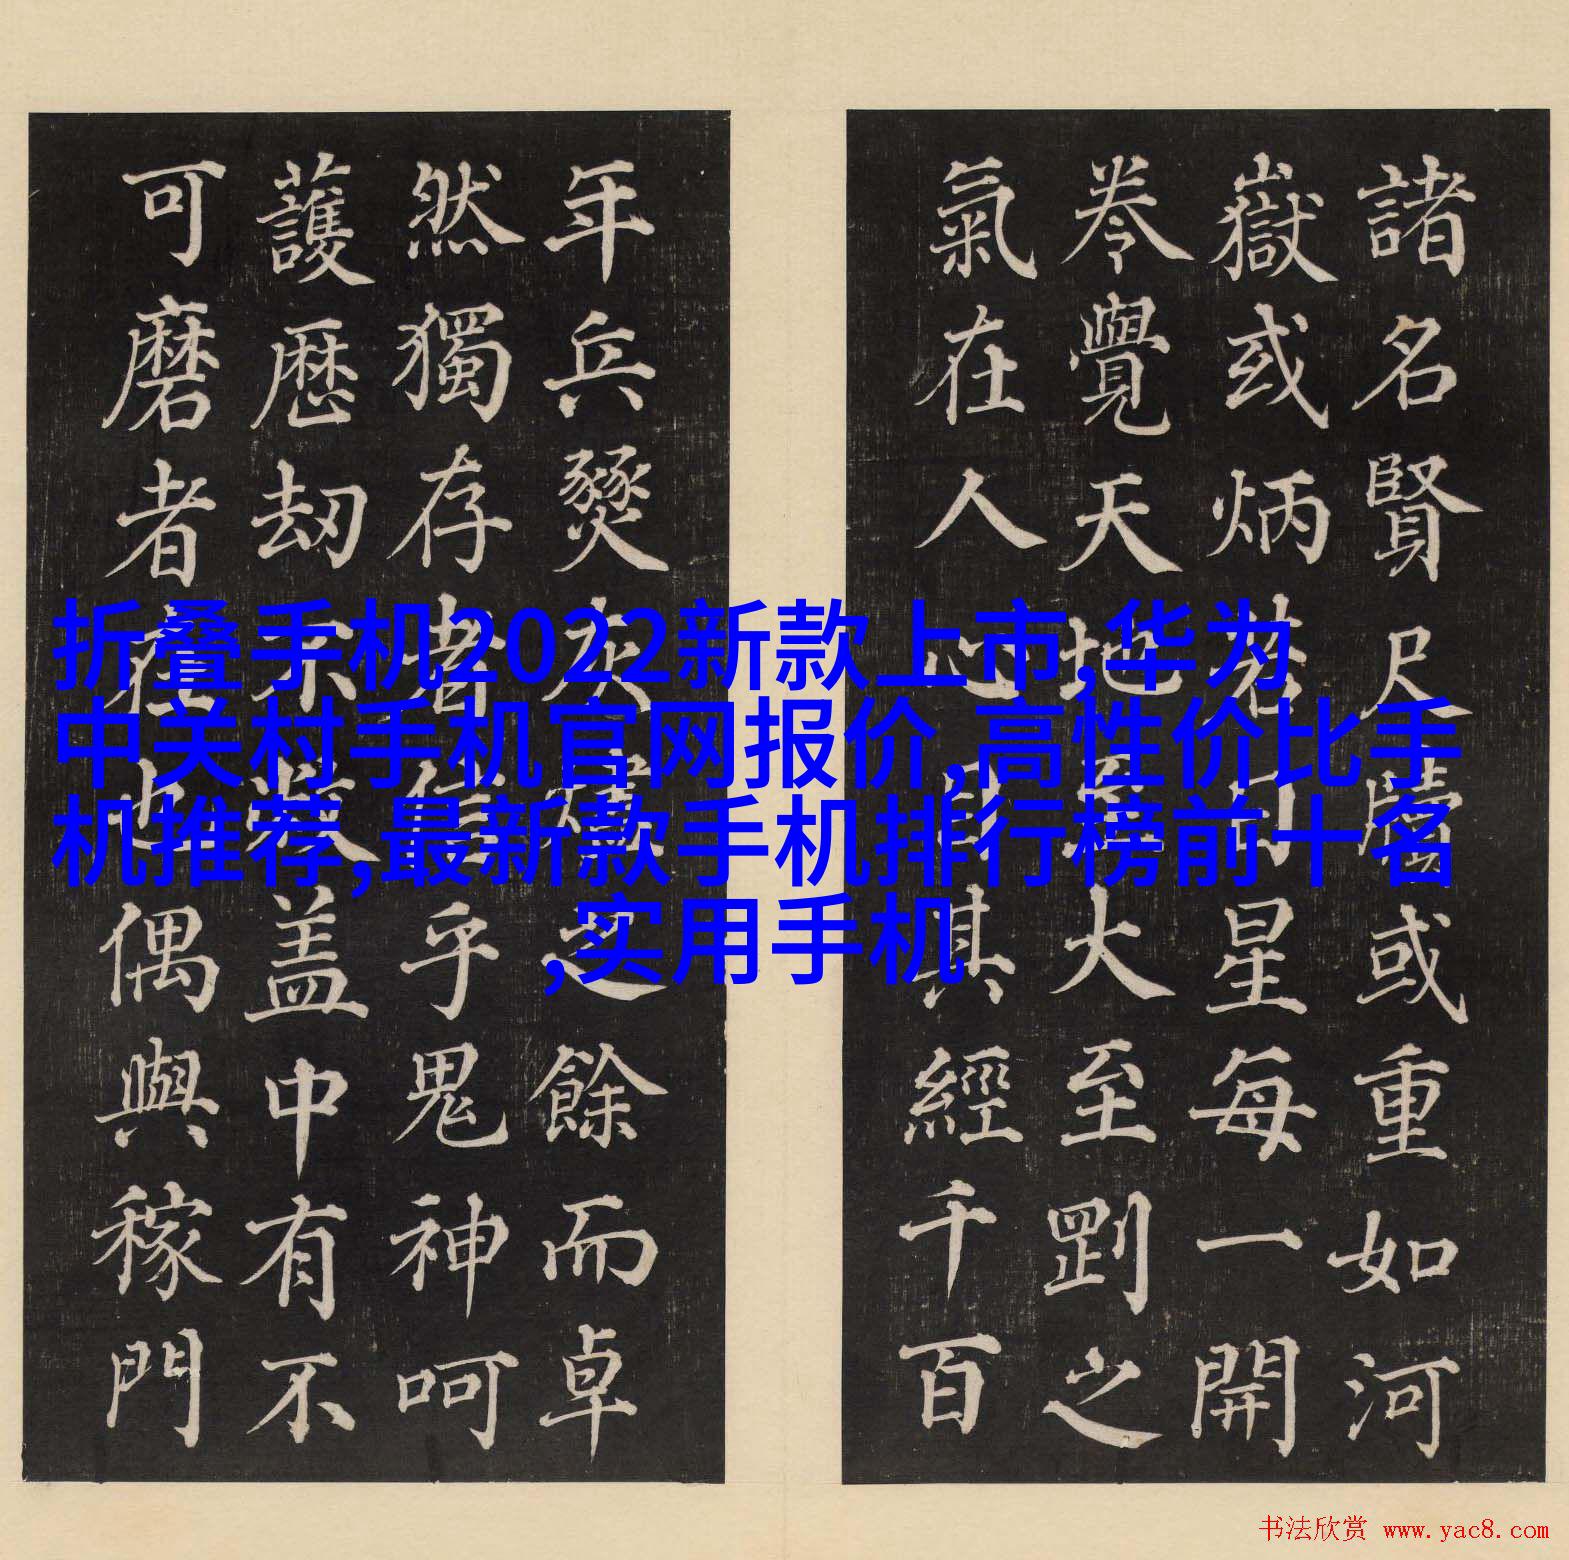 諸名賢尺牘或重如河
嶽或炳若日星每一開
卷覺天地至大至剛之
氣在人心目其經千百
年兵燹灰燼之餘而卓
然獨存者信乎鬼神呵
護歴劫不燬盖中有不
可磨者在也偶與稼門
折叠手机2022新款上市,华为
中关村手机官网报价,高性价比手
机推荐,最新款手机排行榜前十名
,实用手机
书法欣赏 www.yac8.com